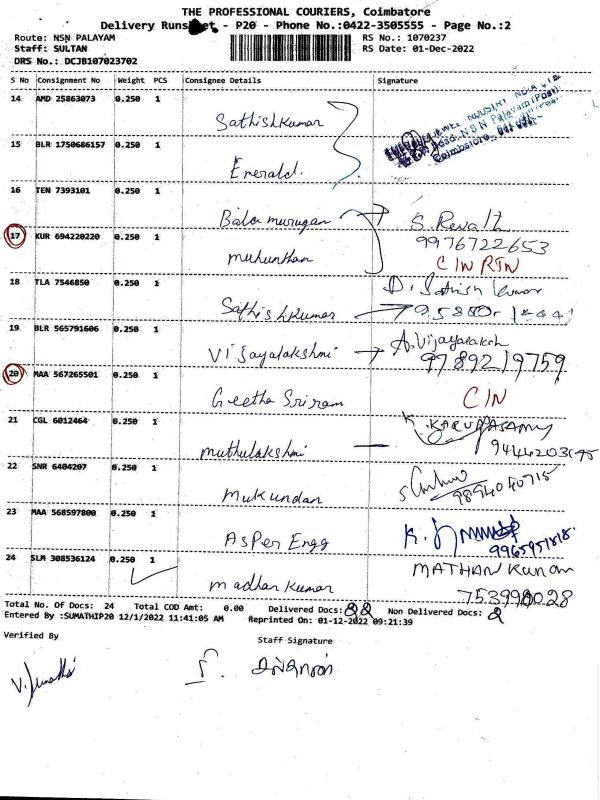 THE PROFESSIONAL COURIERS, Coimbatore
Delivery Runsheet - P20 - Phone No.:0422-3505555 - Page No.:2
Route: NSN PALAYAM
RS No.: 1070237
Staff: SULTAN
RS Date: 01-Dec-2022
DRS No.: DCJB107023702
S No Consignment No Weight PCS Consignee Details Signature
14 AMD 25863073 0.250 1
Sathishkumar
15 BLR 1750686157 0.250 1
N S N Palayam (Post)
Coimbatore
Emerald.
16 TEN 7393101 0.250 1
Balamurugan S. Revath
17 KUR 694220220 0.250 1 9976722653
mukunthan CIN RTN
18 TLA 7546850 0.250 1 D. Sathish kumar
Sathishkumar
19 BLR 565791606 0.250 1
Vijayalakshmi A.Vijayalaksh
9789219759
20 MAA 567265501 0.250 1
Geetha Sriram CIN
21 CGL 6012464 0.250 1 K. KARUPPASAMY
muthulakshmi
22 SNR 6404207 0.250 1
Mukundan 9894040715
23 MAA 568597800 0.250 1
Asper Engg
24 SLM 308536124 0.250 1 MATHAN Kumar
madhan kumar
Total No. Of Docs: 24 Total COD Amt: 0.00 Delivered Docs: 22 Non Delivered Docs: 2
Entered By :SUMATHIP20 12/1/2022 11:41:05 AM Reprinted On: 01-12-2022 09:21:39
Verified By Staff Signature